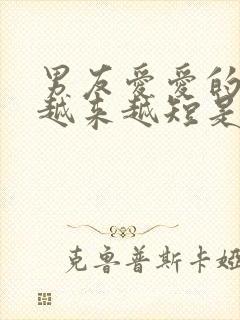 男友爱爱的
越来越短是
克鲁普斯卡娅